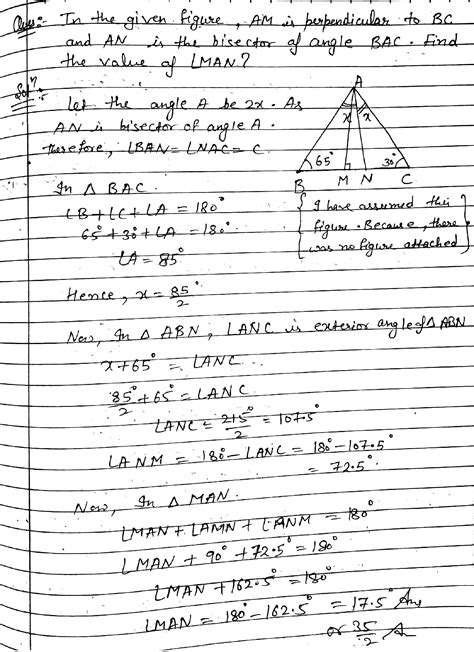 Ques:- In the given figure, AM is perpendicular to BC
and AN is the bisector of angle BAC. Find
the value of ∠MAN?
Solⁿ:-
Let the angle A be 2x. As
AN is bisector of angle A.
therefore, ∠BAN = ∠NAC = C.
A
x x
65° 30°
B M N C
{ I have assumed this
figure. Because, there
was no figure attached }
In △ BAC.
∠B + ∠C + ∠A = 180°
65° + 30° + ∠A = 180°
∠A = 85°
Hence, x = 85°/2
Now, In △ ABN, ∠ANC is exterior angle of △ ABN
x + 65° = ∠ANC
85°/2 + 65° = ∠ANC
∠ANC = 215°/2 = 107.5°
∠ANM = 180° - ∠ANC = 180° - 107.5°
= 72.5°
Now, In △ MAN.
∠MAN + ∠AMN + ∠ANM = 180°
∠MAN + 90° + 72.5° = 180°
∠MAN + 162.5° = 180°
∠MAN = 180° - 162.5° = 17.5° Ans
or 35/2 A